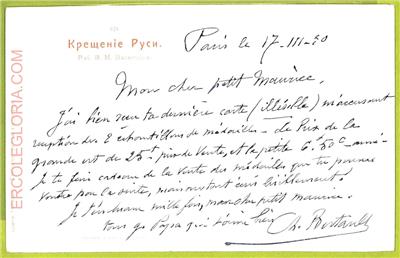 ERCOLEGLORIA.COM
Крещеніе Руси.
Paris le 17-III-30
Mon cher petit Maurice,
J'ai bien reçu ta dernière carte (illisible) m'accusant
réception des 2 échantillons de médailles - Le Prix de la
grande est de 25 prix de vente, et la petite 6.50
Je te fais cadeau de la vente des médailles que tu
vendre
Je mille fois, mon cher petit Maurice.
ton Papa qui t'aime bien
Ch.